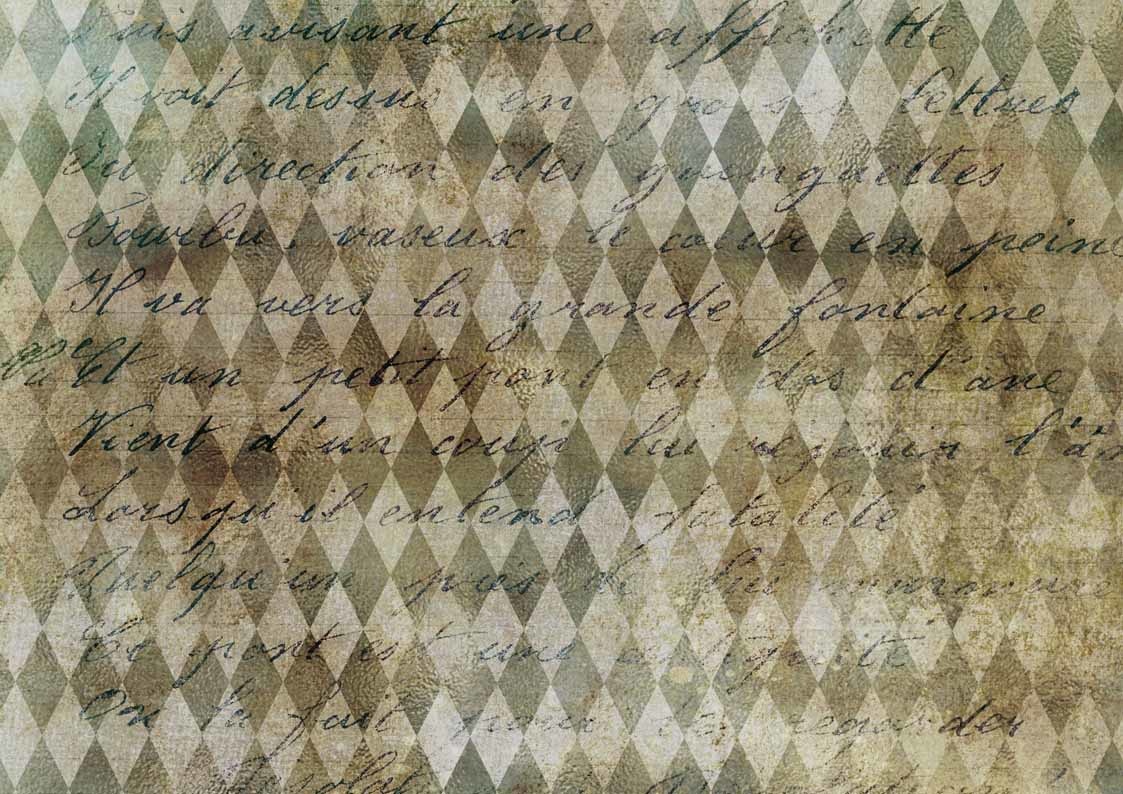 Puis avisant une affichette
Il voit dessus en grosses lettres
Du direction des guinguettes
Fourbu, vaseux le coeur en peine
Il va vers la grande fontaine
Et un petit pont en dos d'ane
Vient d'un coup lui réjouir l'â
Lorsqu'il entend fatalité
Quelqu'un près de lui murmure
Ce pont est une iniquité
On la fait pour des regardes